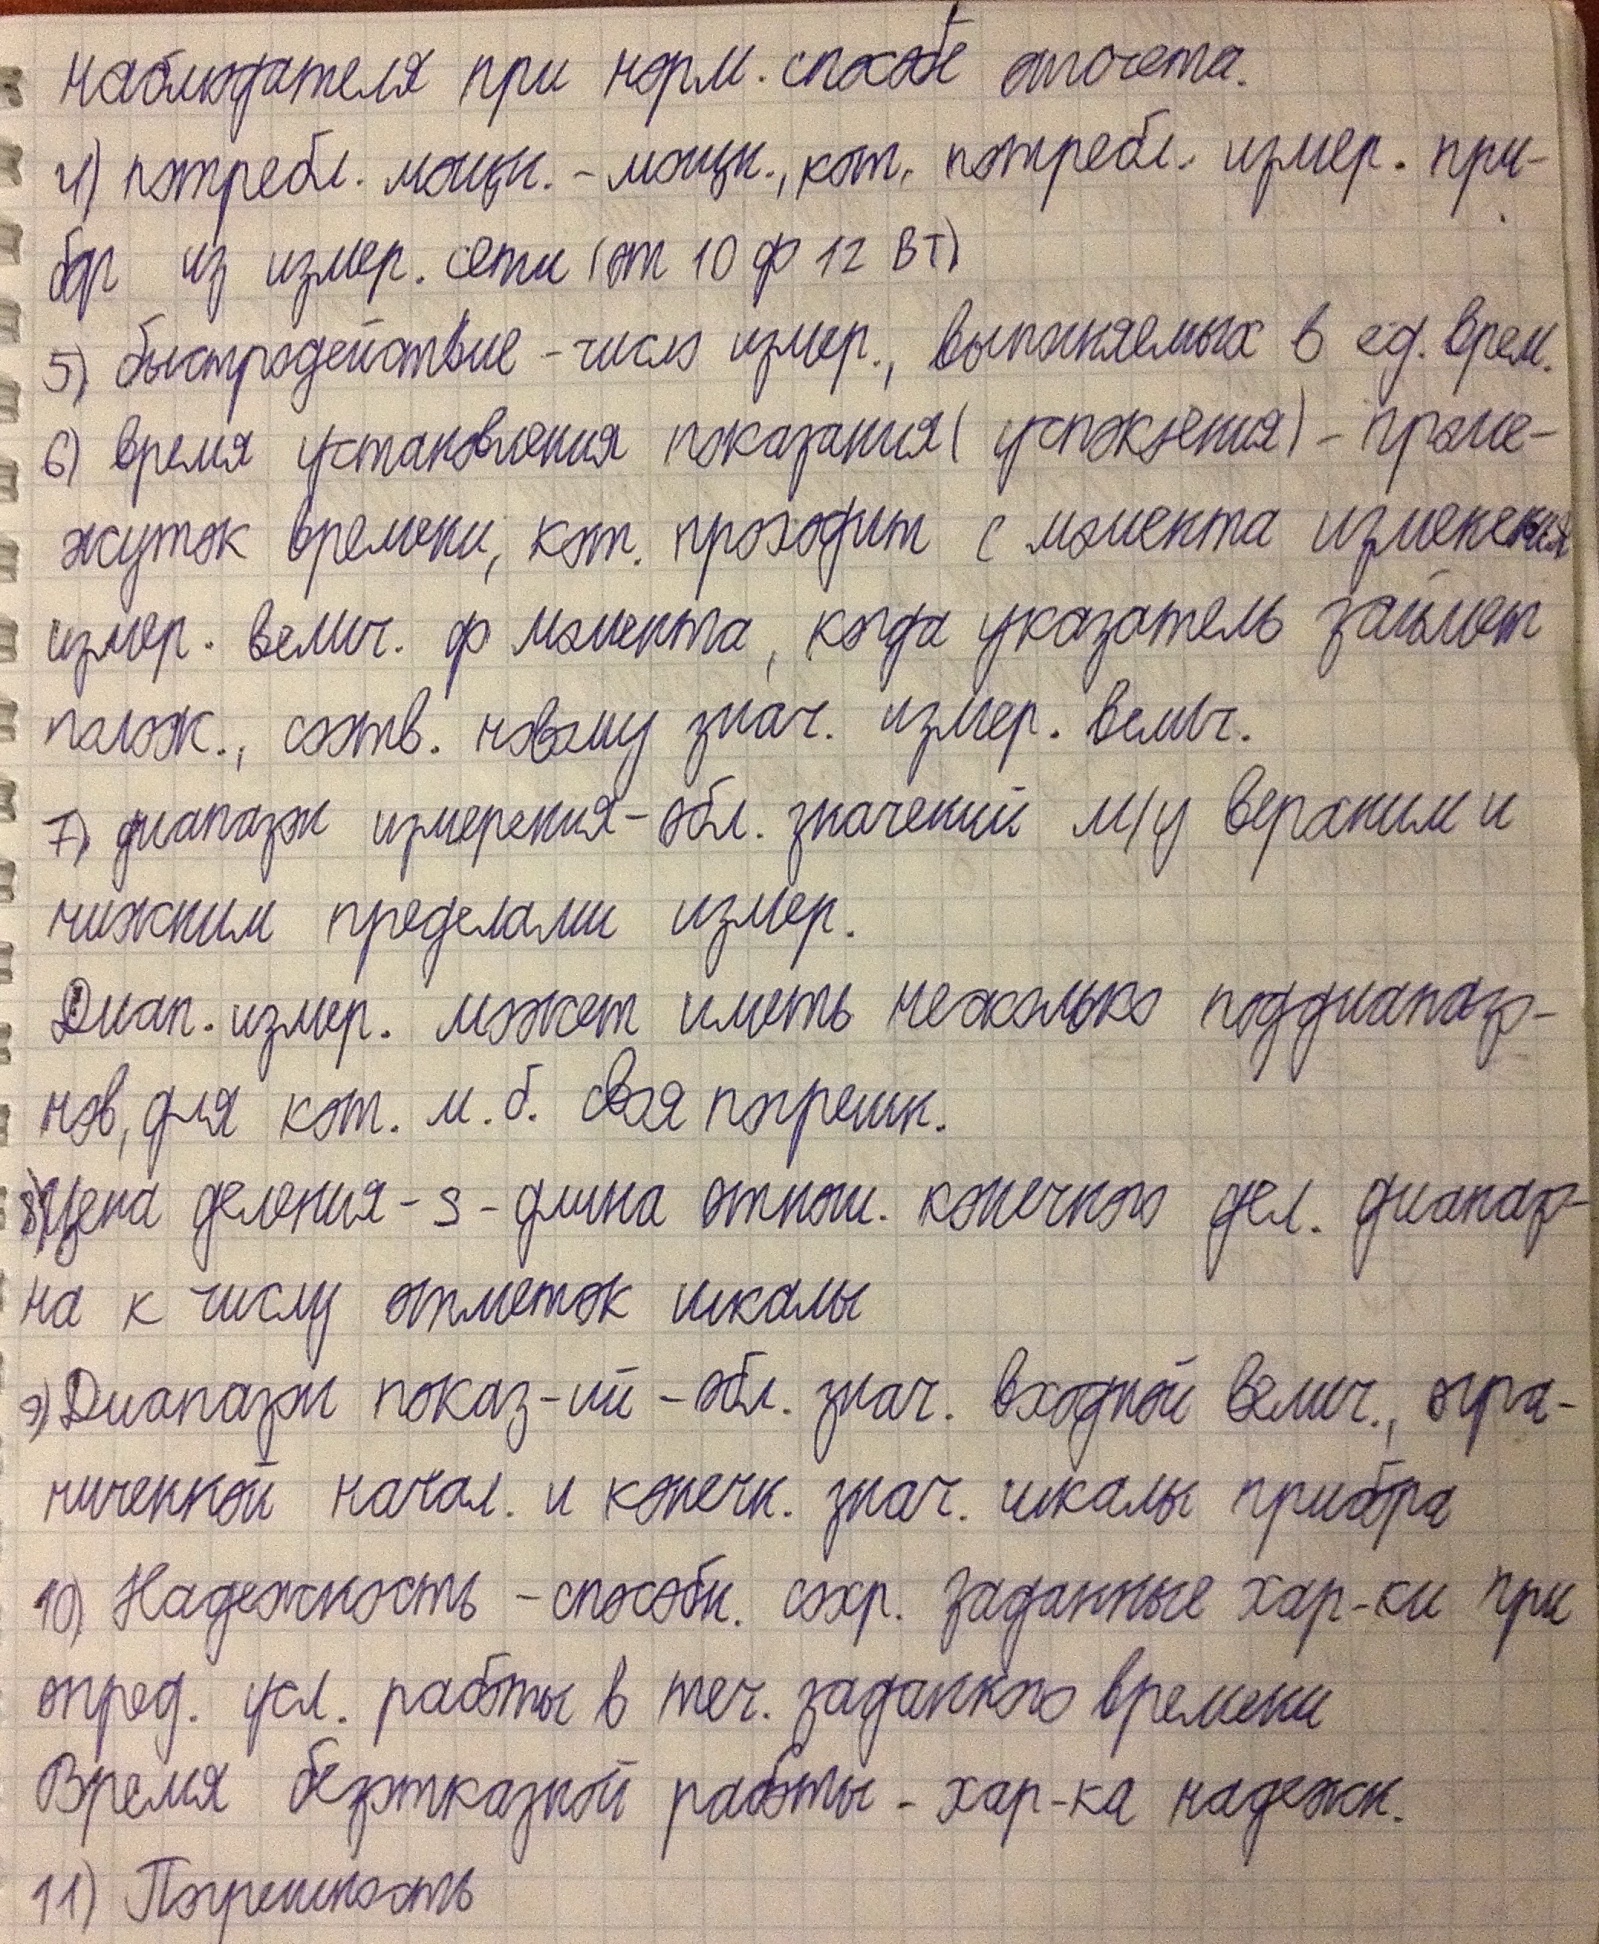 наблюдателя при норм. способе отсчета.
4) потребл. мощн. - мощн., кот. потребл. измер. при-
бор из измер. сети (от 10 до 12 Вт)
5) быстродействие - число измер., выполняемых в ед. врем.
6) время установления показания (успокоения) - проме-
жуток времени, кот. проходит с момента изменения
измер. велич. до момента, когда указатель займет
полож., соотв. новому знач. измер. велич.
7) диапазон измерения - обл. значений м/у верхним и
нижним пределами измер.
Диап. измер. может иметь несколько поддиапазо-
нов, для кот. м. б. своя погрешн.
8) Цена деления - S - длина отнош. конечного дел. диапазо-
на к числу отметок шкалы
9) Диапазон показ-ий - обл. знач. входной велич., огра-
ниченной начал. и конечн. знач. шкалы прибора
10) Надежность - способн. сохр. заданные хар-ки при
опред. усл. работы в теч. заданного времени
Время безотказной работы - хар-ка надежн.
11) Погрешность